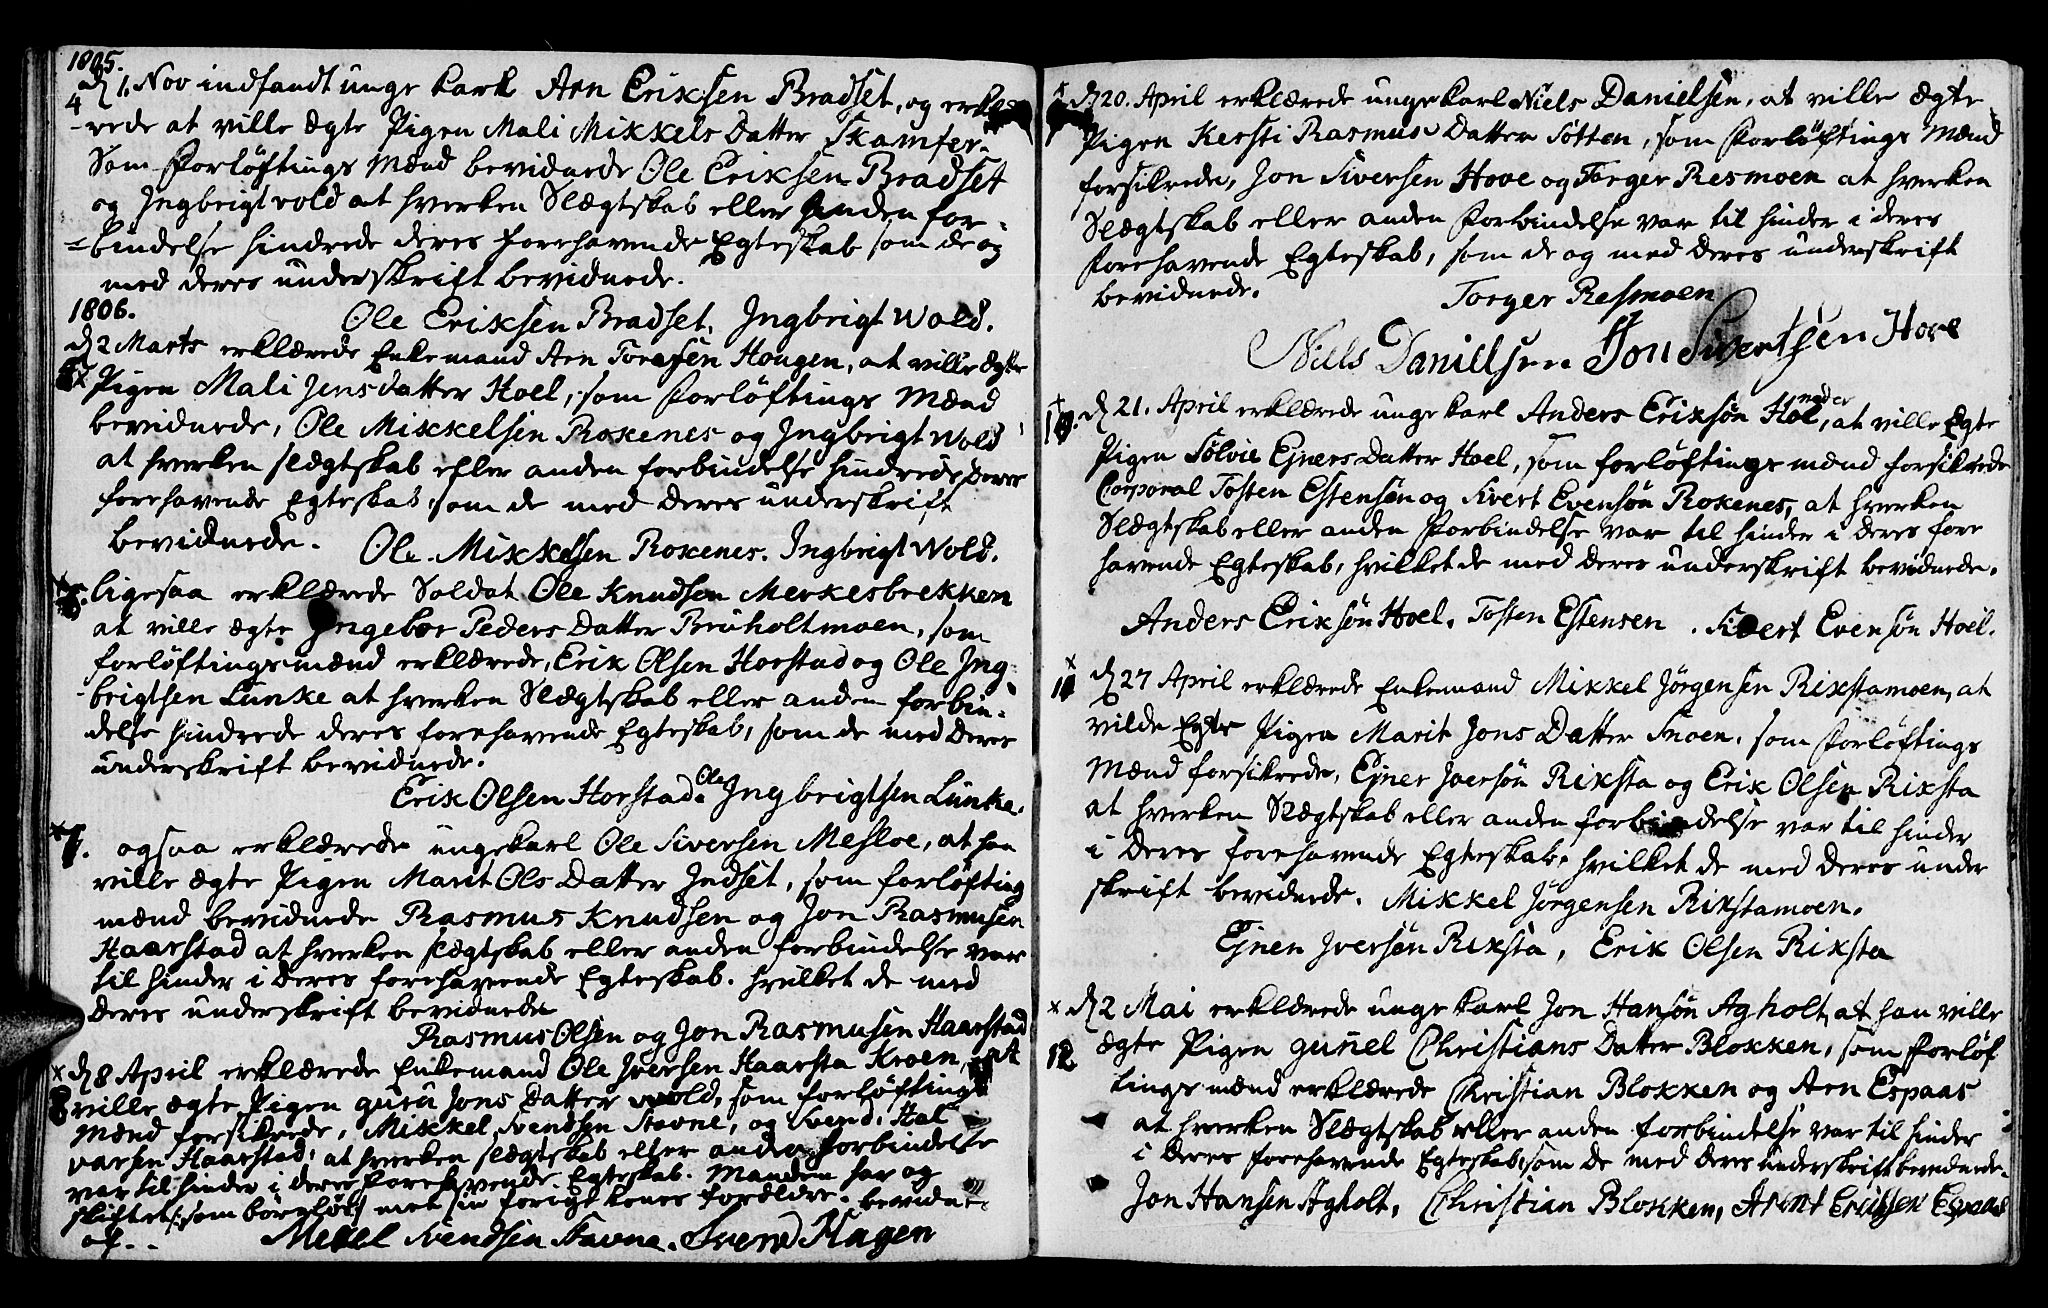 1805.
4 d 1. Nov indfandt unge karl Arn Eriksen Bradset, og erklæ
-rede at ville ægte Pigen Mali Mikkels Datter Skamfer-
Som Forløftings Mænd bevidnede Ole Eriksen Bradset
og Ingbrigt vold at hverken Slægtskab eller anden for-
=bindelse hindrede deres forehavende Egteskab som de og
med deres underskrift bevidnede.
1806.
Ole Eriksen Bradset. Ingbrigt Wold.
d 2 Marts erklærede Enkemand Arn Toresen Hougen, at ville ægte
x Pigen Mali Jensdatter Hoel, som Forløftings Mænd
bevidnede, Ole Mikkelsen Roxenes og Ingbrigt Wold
at hverken slægtskab eller anden forbindelse hindrede deres
forehavende Egteskab som de med deres underskrift
bevidnede. Ole Mikkelsen Roxenes. Ingbrigt Wold.
ligesaa erklærede Soldat Ole Knudsen Merkesbrekken
at ville ægte Ingebor Peders Datter Bruholtmoen, som
forløftingsmænd erklærede, Erik Olsen Horstad og Ole Ing
-brigtsen Lunke at hverken Slægtskab eller anden forbin-
delse hindrede deres forehavende Egteskab, som de med deres
underskrift bevidnede.
Erik Olsen Horstad. Ole Ingbrigtsen Lunke.
x 7. ogsaa erklærede ungekarl Ole Siversen Mesloe, at han
ville ægte Pigen Marit Ols Datter Indset, som forløfting
mænd bevidnede Rasmus Knudsen og Jon Rasmusen
Haarstad at hverken slægtskab eller anden forbindelse var
til hinder i deres forehavende Egteskab. hvilket de med
deres underskrift bevidnede
Rasmus Olsen og Jon Rasmusen Haarstad
x d 8 April erklærede Enkemand Ole Iversen Haarsta Kroen, at
8 ville ægte Pigen guru Jons Datter wold, som forløftings
Mænd forsikrede, Mikkel Svendsen Stavne, og Svend Hal
varsen Haarstad, at hverken slægtskab eller anden forbindelse
var til hinder i deres forehavende Egteskab. Manden har og
skiftet /: som børnløs/ met sin forige kones forældre. bevidne-
af..
Mekel Svendsen Stavne. Svend Hagen
x d 20. April erklærede unge karl Niels Danielsen, at ville ægte
Pigen Kersti Rasmus Datter Sotten, som Forløftings Mænd
forsikrede, Jon Siversen Hove og Torger Resmoen at hverken
Slægtskab eller anden Forbindelse var til hinder i deres
forehavende Egteskab, som de og med deres underskrift
bevidnede.
Torger Resmoen
Niels Daniellsen. Jon Sivertsen Hove
x 10. d 21. April erklærede unge karl Anders Eriksøn Hoel, neder at ville Egte
Pigen Sølvie Ejners Datter Hoel, som forløftings mænd forsikrede
Corporal Tosten Estensøn og Sivert Evensøn Roxenes, at hverken
Slægtskab eller anden Forbindelse var til hinder i deres fore
havende Egteskab, hvilket de med deres underskrift bevidnede.
Anders Eriksøn Hoel. Tosten Estensen. Sivert Evensøn Hoel.
x
11 d 27 April erklærede Enkemand Mikkel Jørgensen Rixstamoen, at
vilde Egte Pigen Marit Jons Datter Snoen, som Forløftings
Mænd forsikrede, Ejner Iversøn Rixsta og Erik Olsen Rixsta
at hverken Slægtskab eller anden forbindelse var til hinder
i deres forehavende Egteskab, hvilket de med deres under
skrift bevidnede. Mikkel Jørgensen Rixstamoen.
Ejner Iversøn Rixsta, Erik Olsen Rixsta
x d 2 Mai erklærede unge karl Jon Hansøn Agholt, at han ville
12 ægte Pigen gunel Christians Datter Blokken, som Forløf
tings mænd erklærede Christian Blokken og Arn Espaas
at hverken Slægtskab eller anden forbindelse var til hinder
i deres forehavende Egteskab, som de med deres underskrift bevidnede.
Jon Hansen Agholt, Christian Blokken, Arent Eriksen Espaas